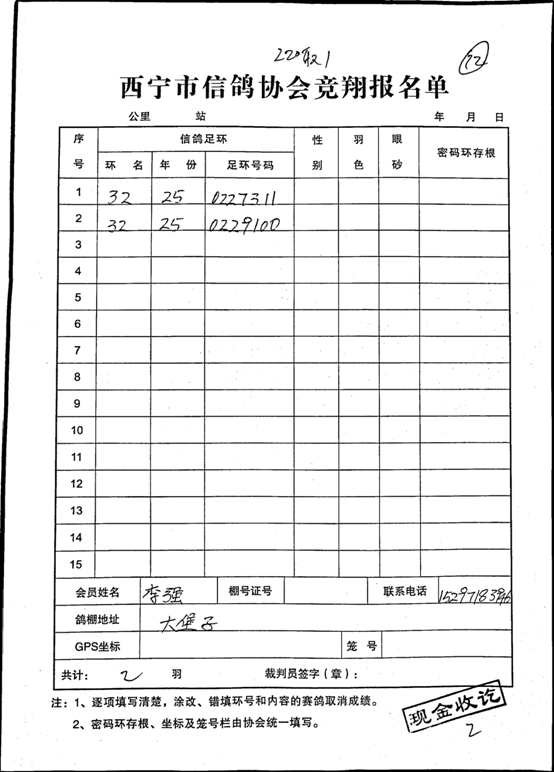 220取1
22
西宁市信鸽协会竞翔报名单
公里 站 年 月 日
序号 信鸽足环 性别 羽色 眼砂 密码环存根
环名 年份 足环号码
1 32 25 0227311
2 32 25 0229100
3
4
5
6
7
8
9
10
11
12
13
14
15
会员姓名 李强 棚号证号 联系电话
鸽棚地址 大堡子
GPS坐标 笼号
共计: 2 羽 裁判员签字(章):
注:1、逐项填写清楚,涂改、错填环号和内容的赛鸽取消成绩。
2、密码环存根、坐标及笼号栏由协会统一填写。
现金收讫
2